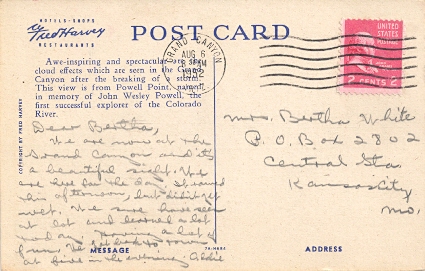 HOTELS · SHOPS
Fred Harvey
RESTAURANTS
POST CARD
Awe-inspiring and spectacular are the
cloud effects which are seen in the Grand
Canyon after the breaking of a storm.
This view is from Powell Point, named
in memory of John Wesley Powell, the
first successful explorer of the Colorado
River.
COPYRIGHT BY FRED HARVEY
GRAND CANYON
AUG 6
PM
UNITED
STATES
POSTAGE
2 CENTS 2
Dear Bertha,
We are now at the
Grand Canyon and it's
a beautiful sight. We
are here for the day. It rained
this afternoon, but didn't get
wet. We sure have seen
a lot and learned a lot
today. Having a lot of
fun. We get back to
at five in the evening. Addie
Mrs. Bertha White
P.O. Box 2802
Central Sta.
Kansas City
Mo.
MESSAGE
ADDRESS